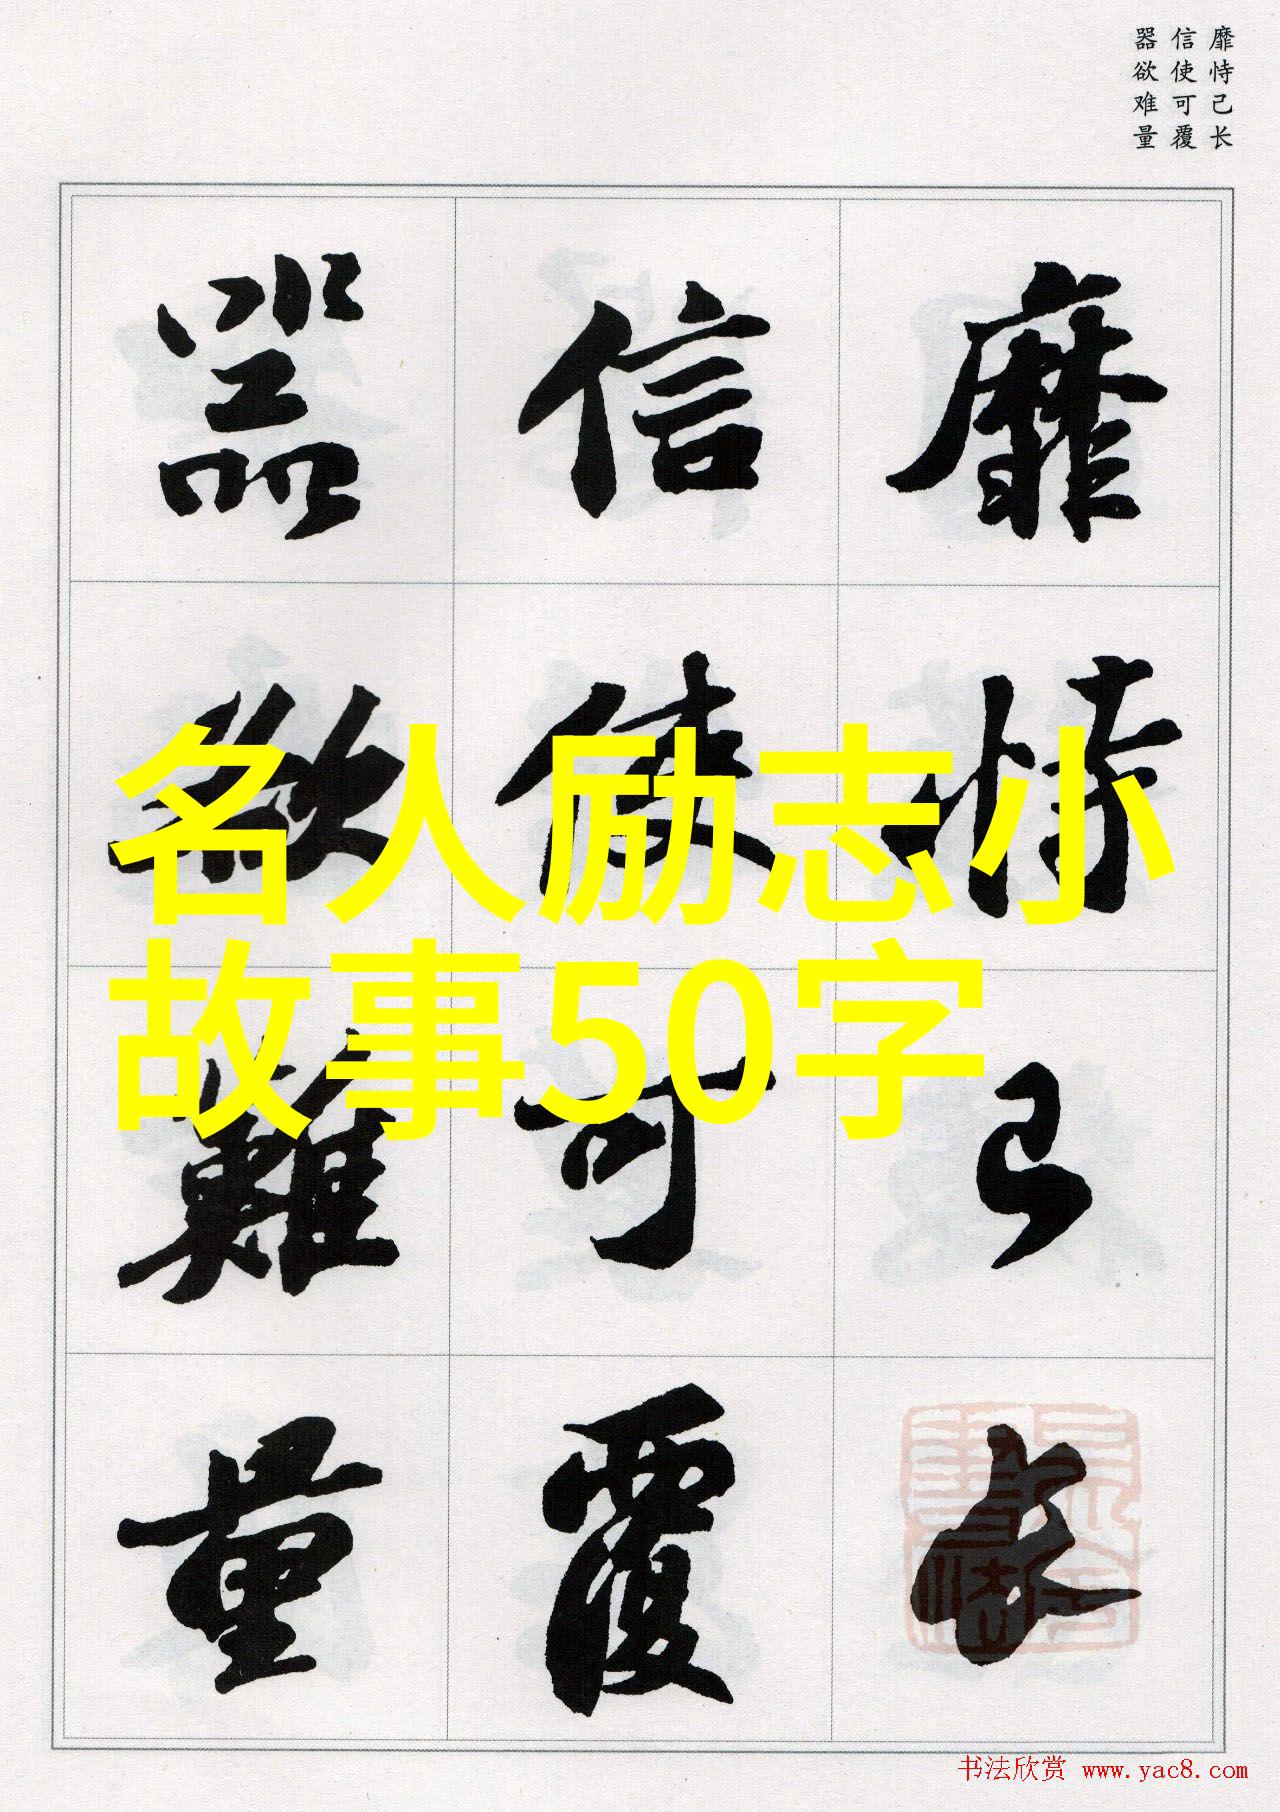 靡恃己长
信使可覆
器欲难量
靡恃己长
信使可覆
器欲難量
名人励志小
故事50字
书法欣赏 www.yac8.com